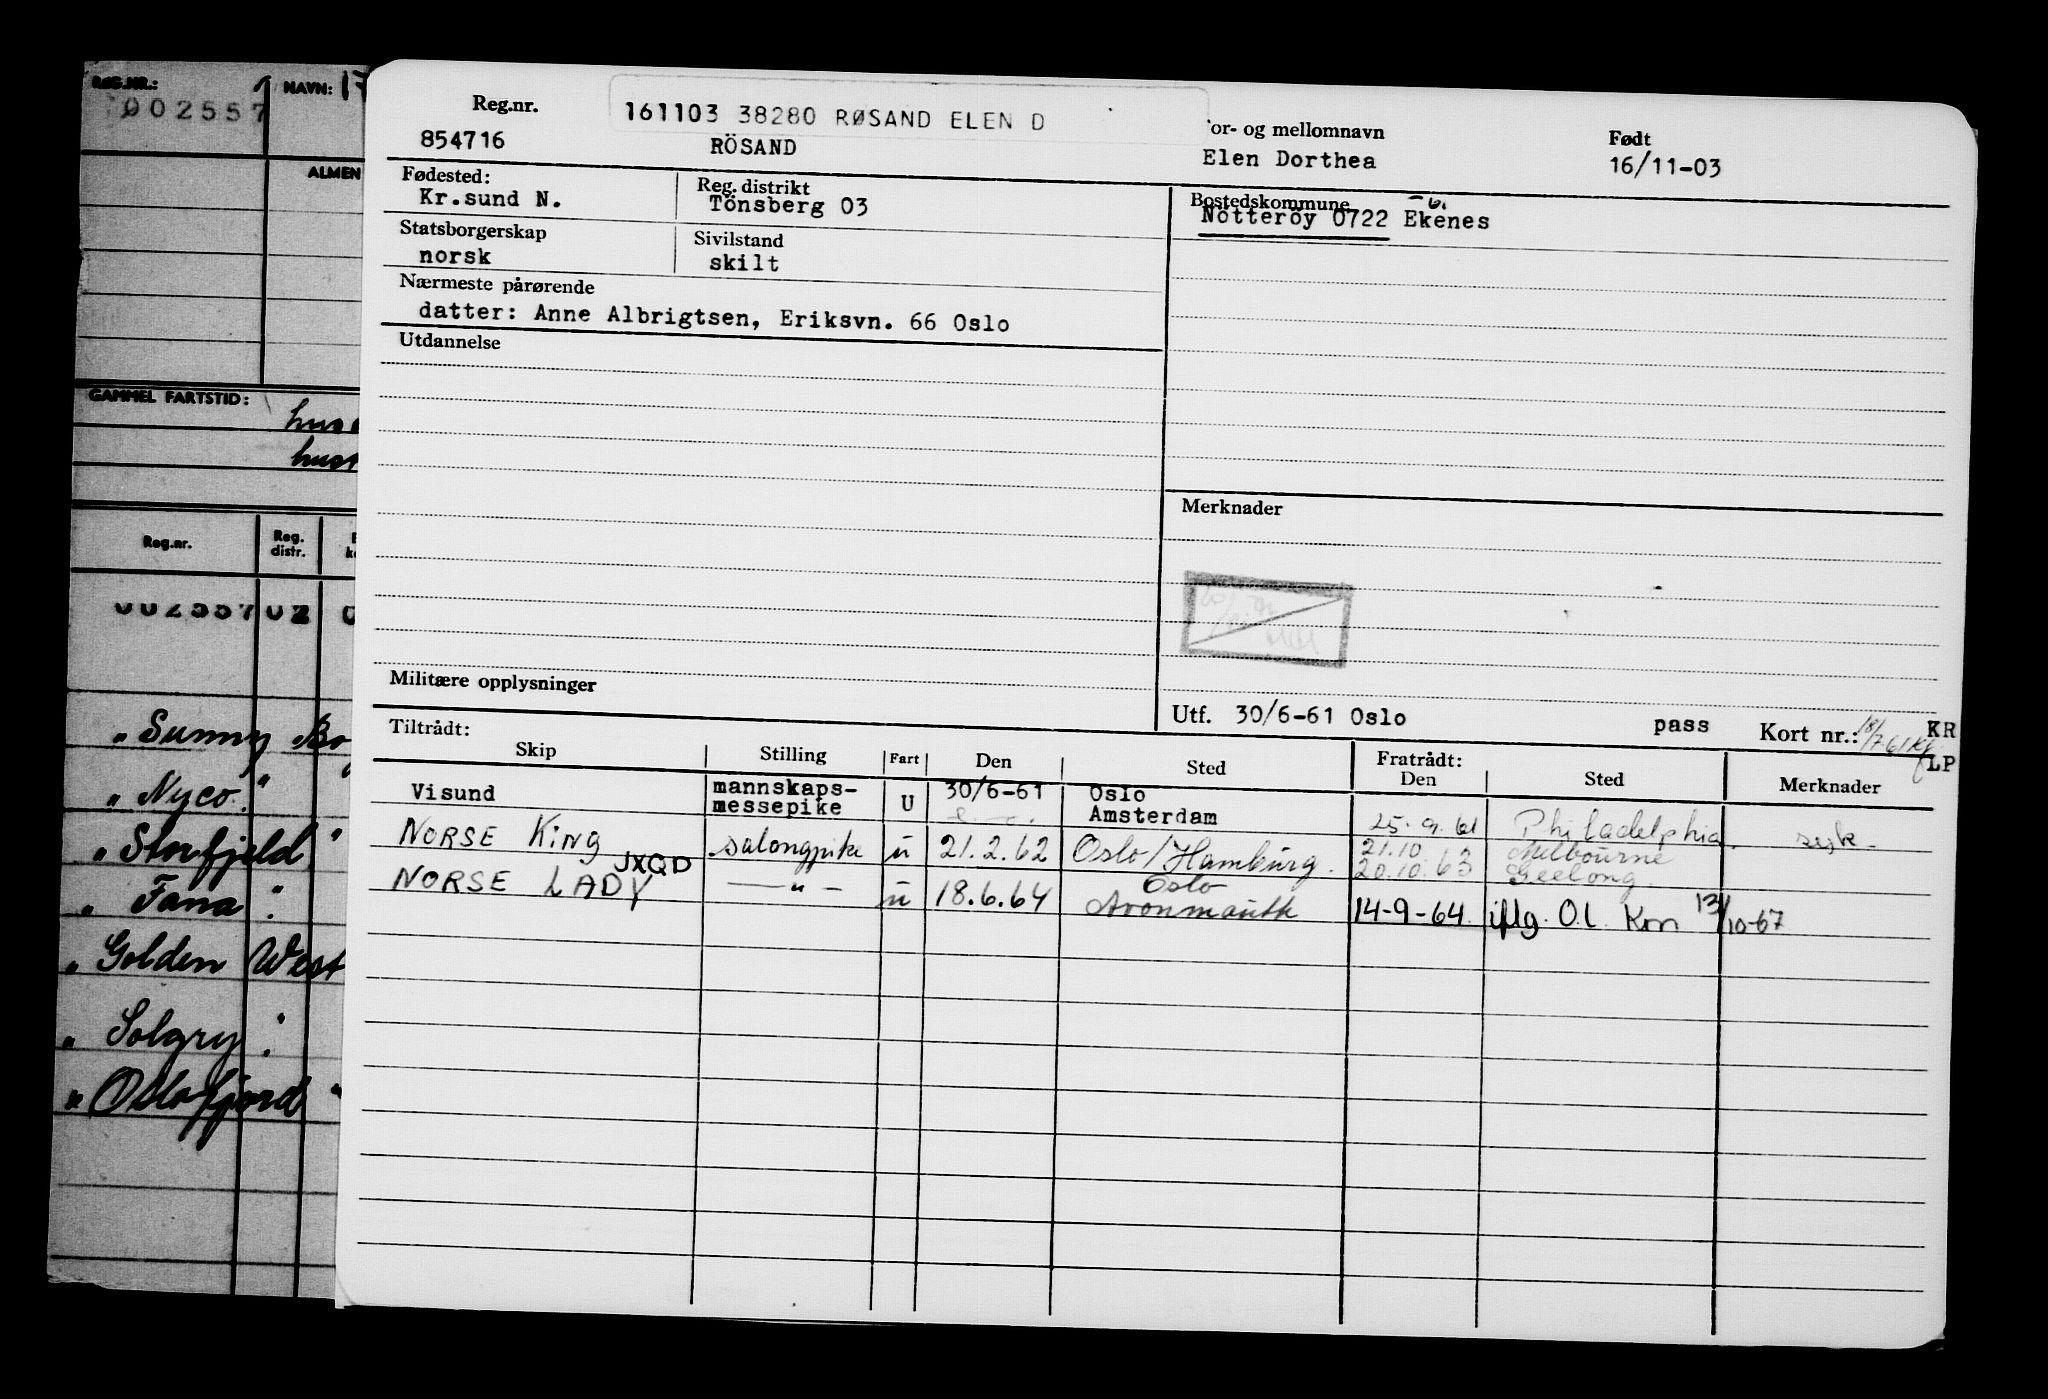 REG.NR.: NAVN:
002557
ALMEN
GAMMEL FARTSTID:
Reg.nr. Reg. distr.
002557 02
"Sunny
"Nyco."
"Storfjeld"
"Fana"
"Golden West
"Solgry"
"Oslofjord"
Reg.nr. 161103 38280 RØSAND ELEN D
or- og mellomnavn Født
854716 RÖSAND Elen Dorthea 16/11-03
Fødested: Reg. distrikt Bostedskommune
Kr.sund N. Tönsberg 03 Nötteröy 0722 Ekenes
Statsborgerskap Sivilstand
norsk skilt
Nærmeste pårørende
datter: Anne Albrigtsen, Eriksvn. 66 Oslo
Utdannelse
Merknader
Militære opplysninger
Utf. 30/6-61 Oslo pass Kort nr.: KR
LP
Tiltrådt: Fratrådt:
Skip Stilling Fart Den Sted Den Sted Merknader
Visund mannskaps- U 30/6-61 Oslo
messepike Amsterdam 25.9.61 Philadelphia. syk.
NORSE KING salongpike u 21.2.62 Oslo/Hamburg. 21.10 Melbourne
20.10.63 Geelong.
JXQD
NORSE LADY — " — u 18.6.64 Oslo
Avonmouth 14-9-64. iflg. O.l. Kon 13/10-67